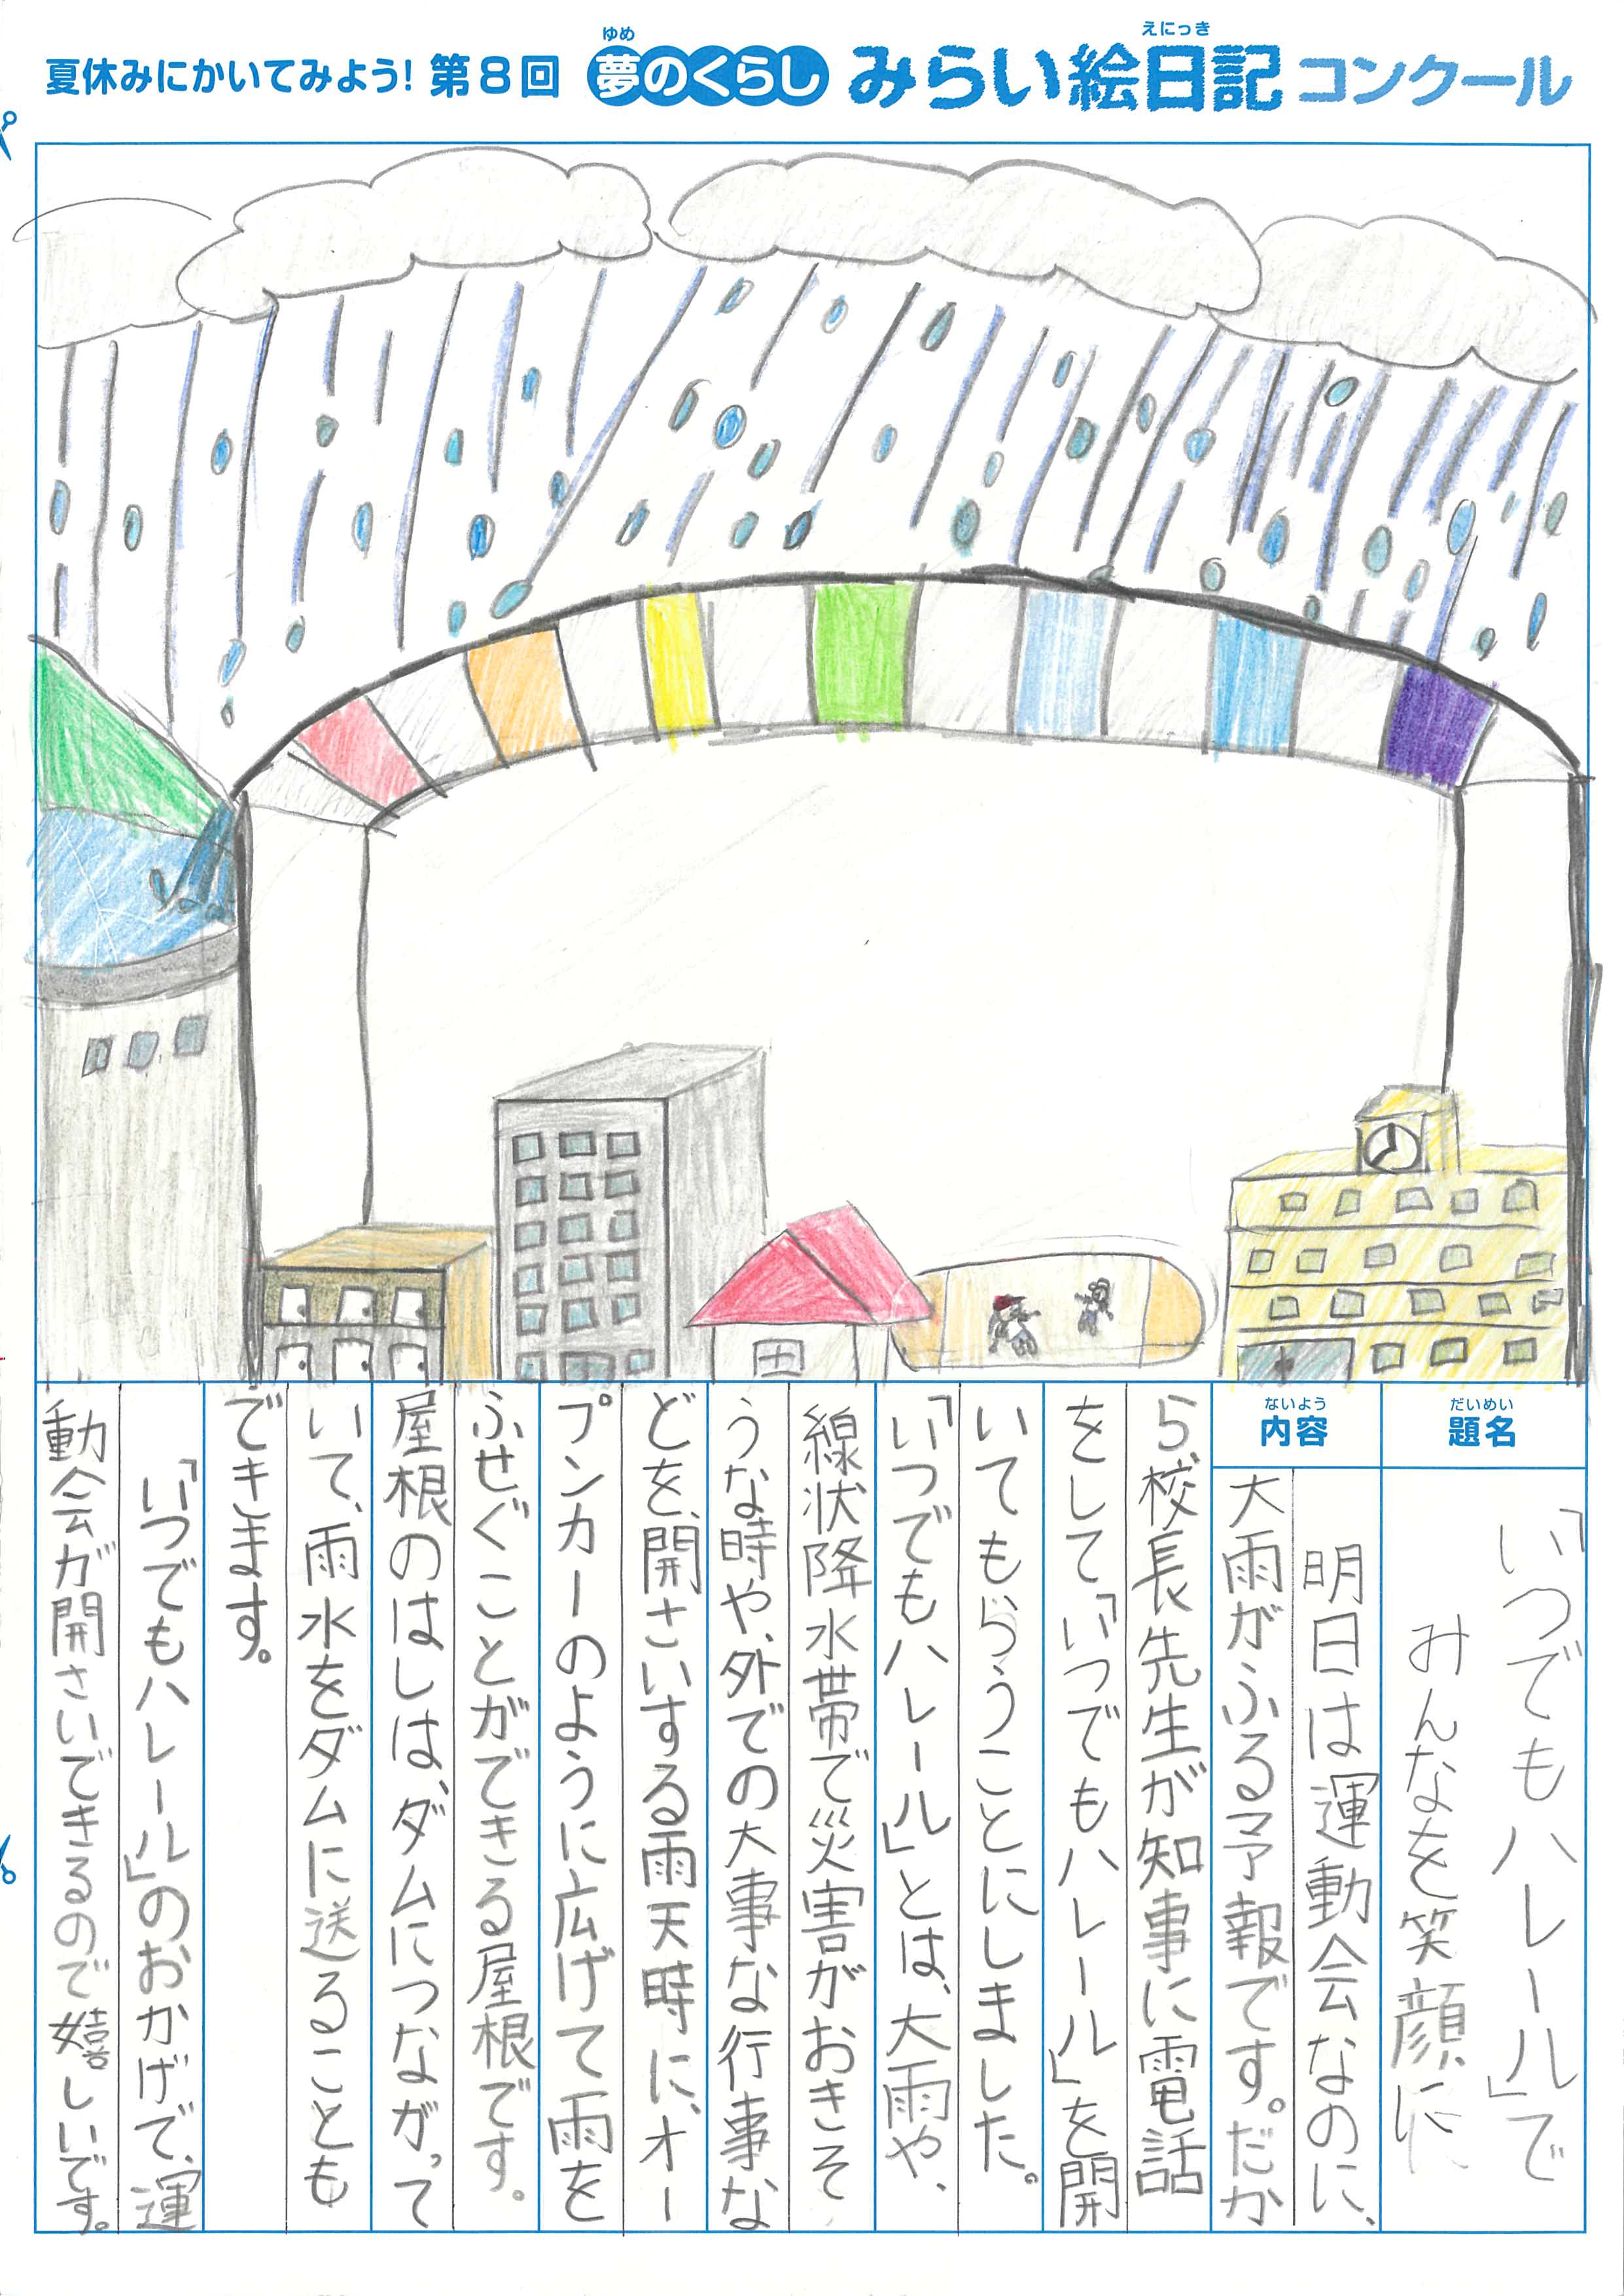 夏休みにかいてみよう! 第8回 夢のくらし みらい絵日記コンクール
ゆめ
えにっき
だいめい
題名
「いつでもハレール」で
みんなを笑顔に
ないよう
内容
明日は運動会なのに、
大雨がふる予報です。だか
ら、校長先生が知事に電話
をして「いつでもハレール」を開
いてもらうことにしました。
「いつでもハレール」とは、大雨や、
線状降水帯で災害がおきそ
うな時や、外での大事な行事な
どを、開さいする雨天時に、オー
プンカーのように広げて雨を
ふせぐことができる屋根です。
屋根のはしは、ダムにつながって
いて、雨水をダムに送ることも
できます。
「いつでもハレール」のおかげで、運
動会が開さいできるので嬉しいです。